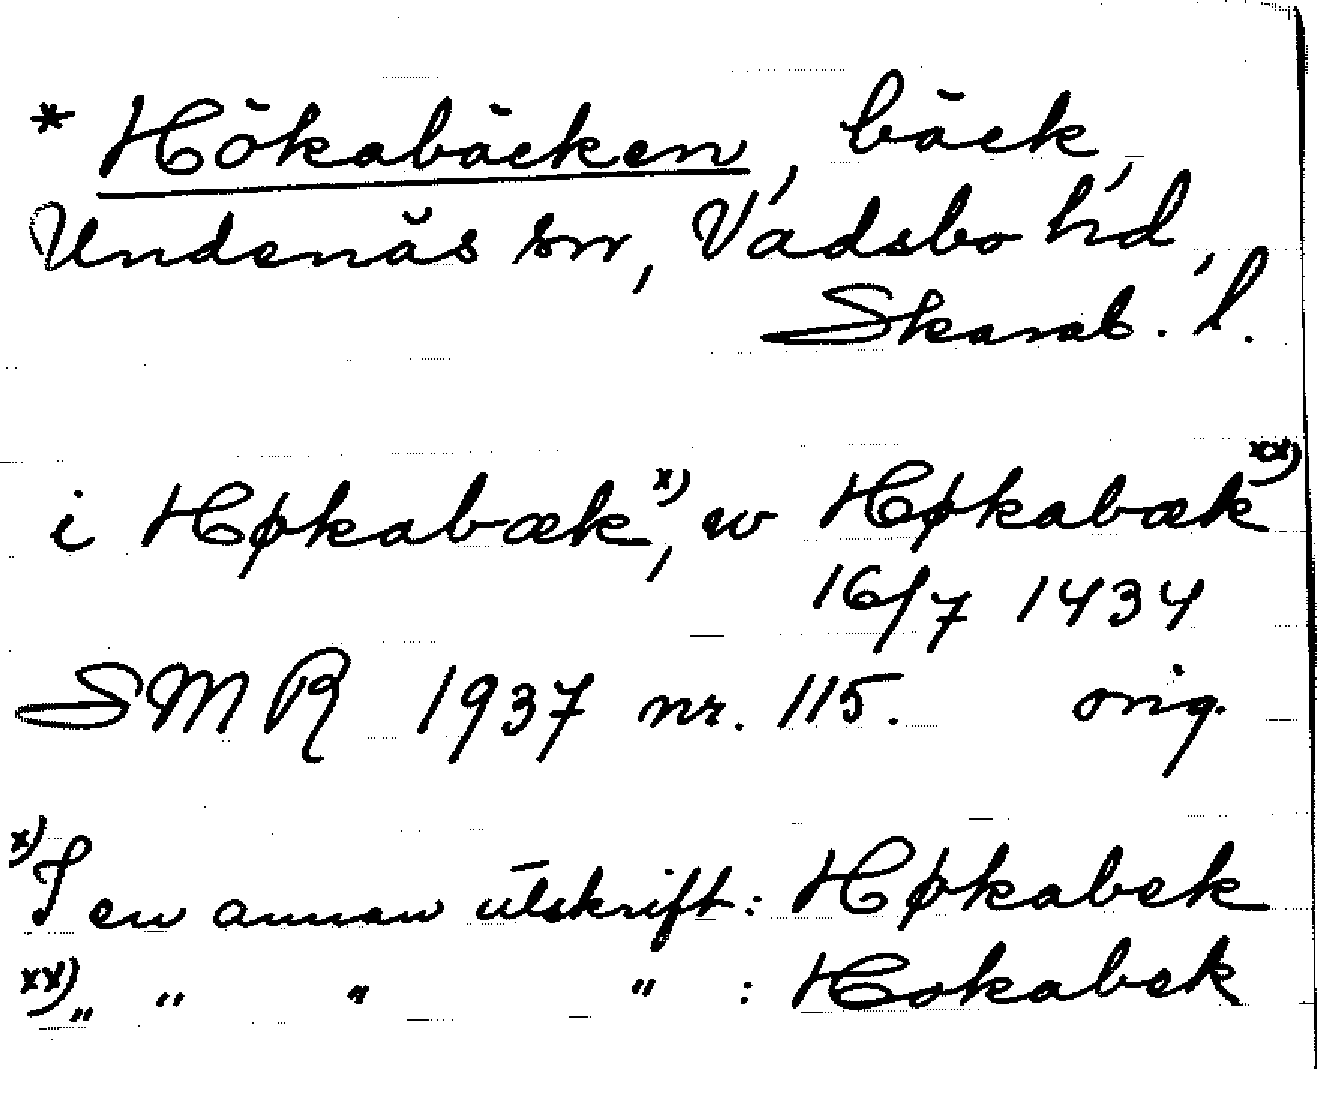 * Hökabäcken, bäck,
Undenäs sn, Vadsbo hd,
Skarab. l.
i Høkabæk x), w Høkabæk xx)
16/7 1434
SMR 1937 nr. 115. orig.
x) I en annan utskrift: Høkabek
xx) „ „ „ „ : Hokabek